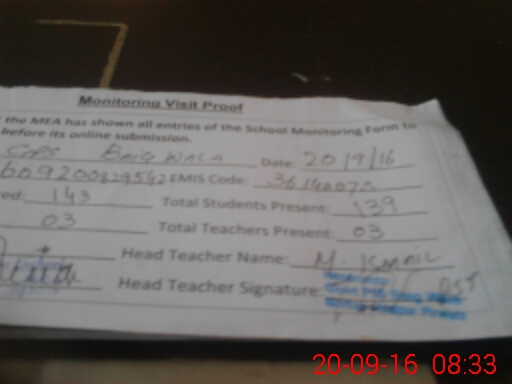 Monitoring Visit Proof
the MEA has shown all entries of the School Monitoring Form to
before its online submission.
GPS Baig wala Date: 20/9/16
EMIS Code: 36140075
red: 143 Total Students Present: 139
03 Total Teachers Present: 03
Head Teacher Name: M.
Head Teacher Signature: PST
20-09-16 08:33